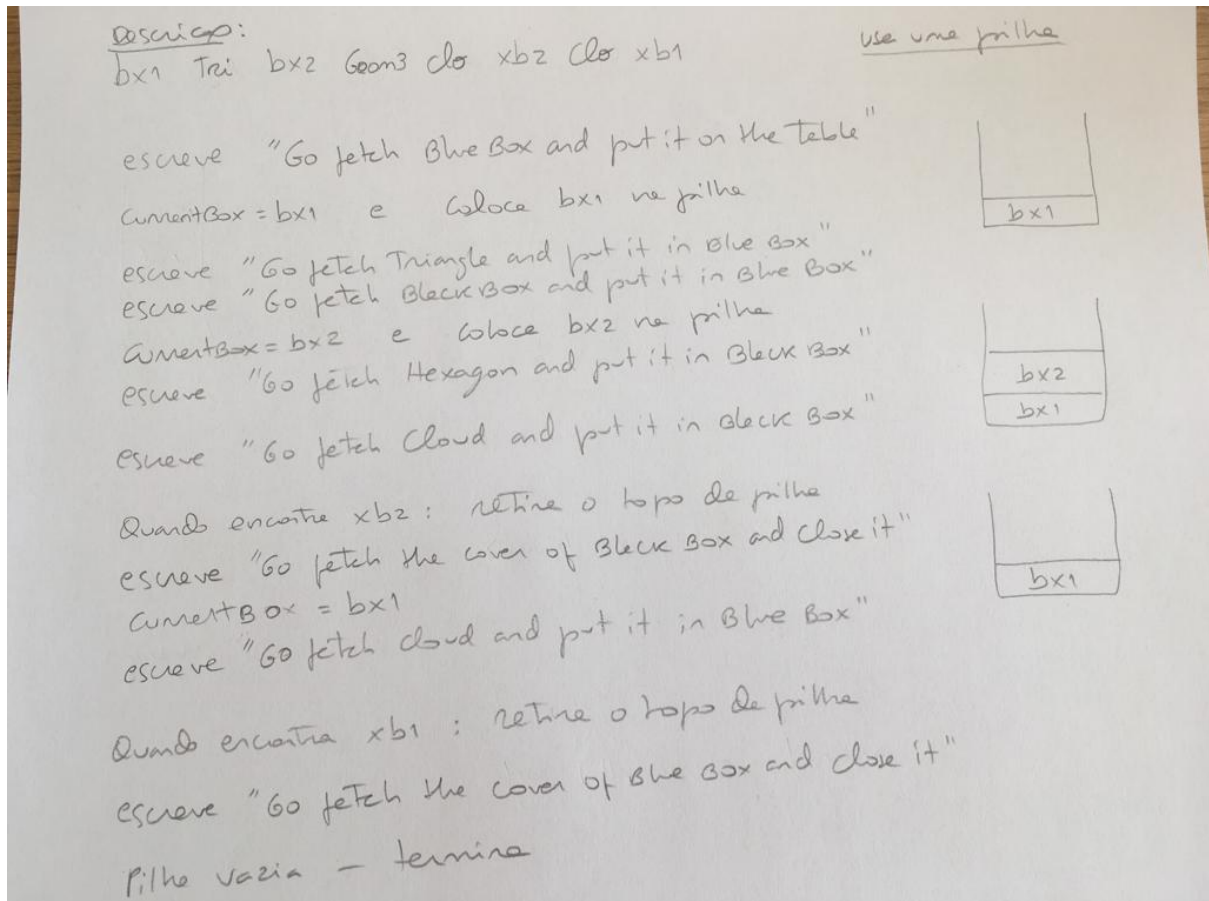 Descrição:
use uma pilha
bx1 Tri bx2 Geom3 Clo xb2 Clo xb1
escreve "Go fetch Blue Box and put it on the table"
CurrentBox = bx1 e coloca bx1 na pilha
bx1
escreve "Go fetch Triangle and put it in Blue Box"
escreve "Go fetch Black Box and put it in Blue Box"
CurrentBox = bx2 e coloca bx2 na pilha
escreve "Go fetch Hexagon and put it in Black Box"
bx2
bx1
escreve "Go fetch Cloud and put it in Black Box"
Quando encontra xb2 : retira o topo da pilha
escreve "Go fetch the cover of Black Box and Close it"
CurrentBox = bx1
bx1
escreve "Go fetch cloud and put it in Blue Box"
Quando encontra xb1 : retira o topo da pilha
escreve "Go fetch the cover of Blue Box and close it"
Pilha vazia - termina